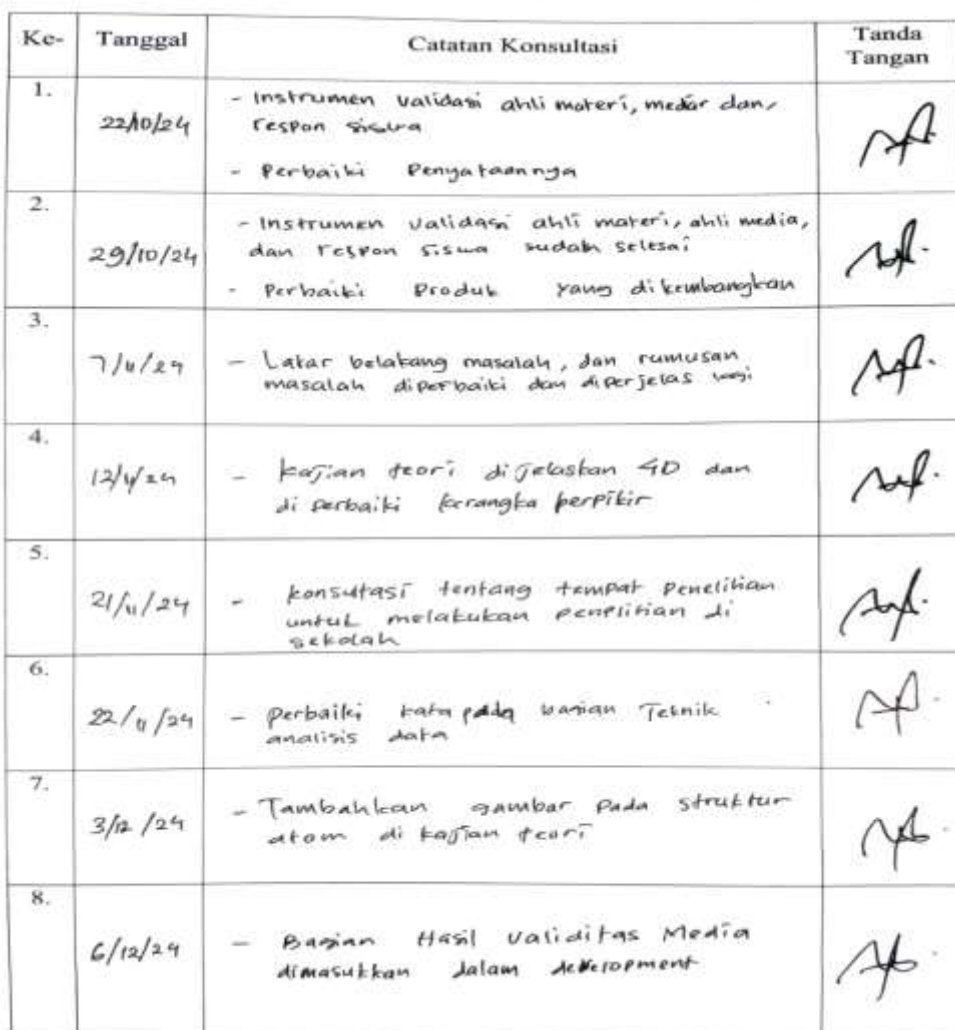 Ke- Tanggal Catatan Konsultasi Tanda Tangan
1.
22/10/24
- Instrumen validasi ahli materi, mediar dan,
respon siswa
- Perbaiki Penyataannya
2.
29/10/24
- Instrumen validasi ahli materi, ahli media,
dan respon siswa sudah selesai
- Perbaiki Produk yang dikembangkan
3.
7/11/24
- Latar belakang masalah, dan rumusan
masalah diperbaiki dan diperjelas lagi
4.
12/11/24
- kajian teori dijelaskan 4D dan
di perbaiki kerangka berpikir
5.
21/11/24
- konsutasi tentang tempat penelitian
untuk melakukan penelitian di
sekolah
6.
22/11/24
- perbaiki kata pada bagian Teknik
analisis data
7.
3/12/24
- Tambahkan gambar pada struktur
atom di kajian teori
8.
6/12/24
- Bagian Hasil validitas Media
dimasukkan dalam development